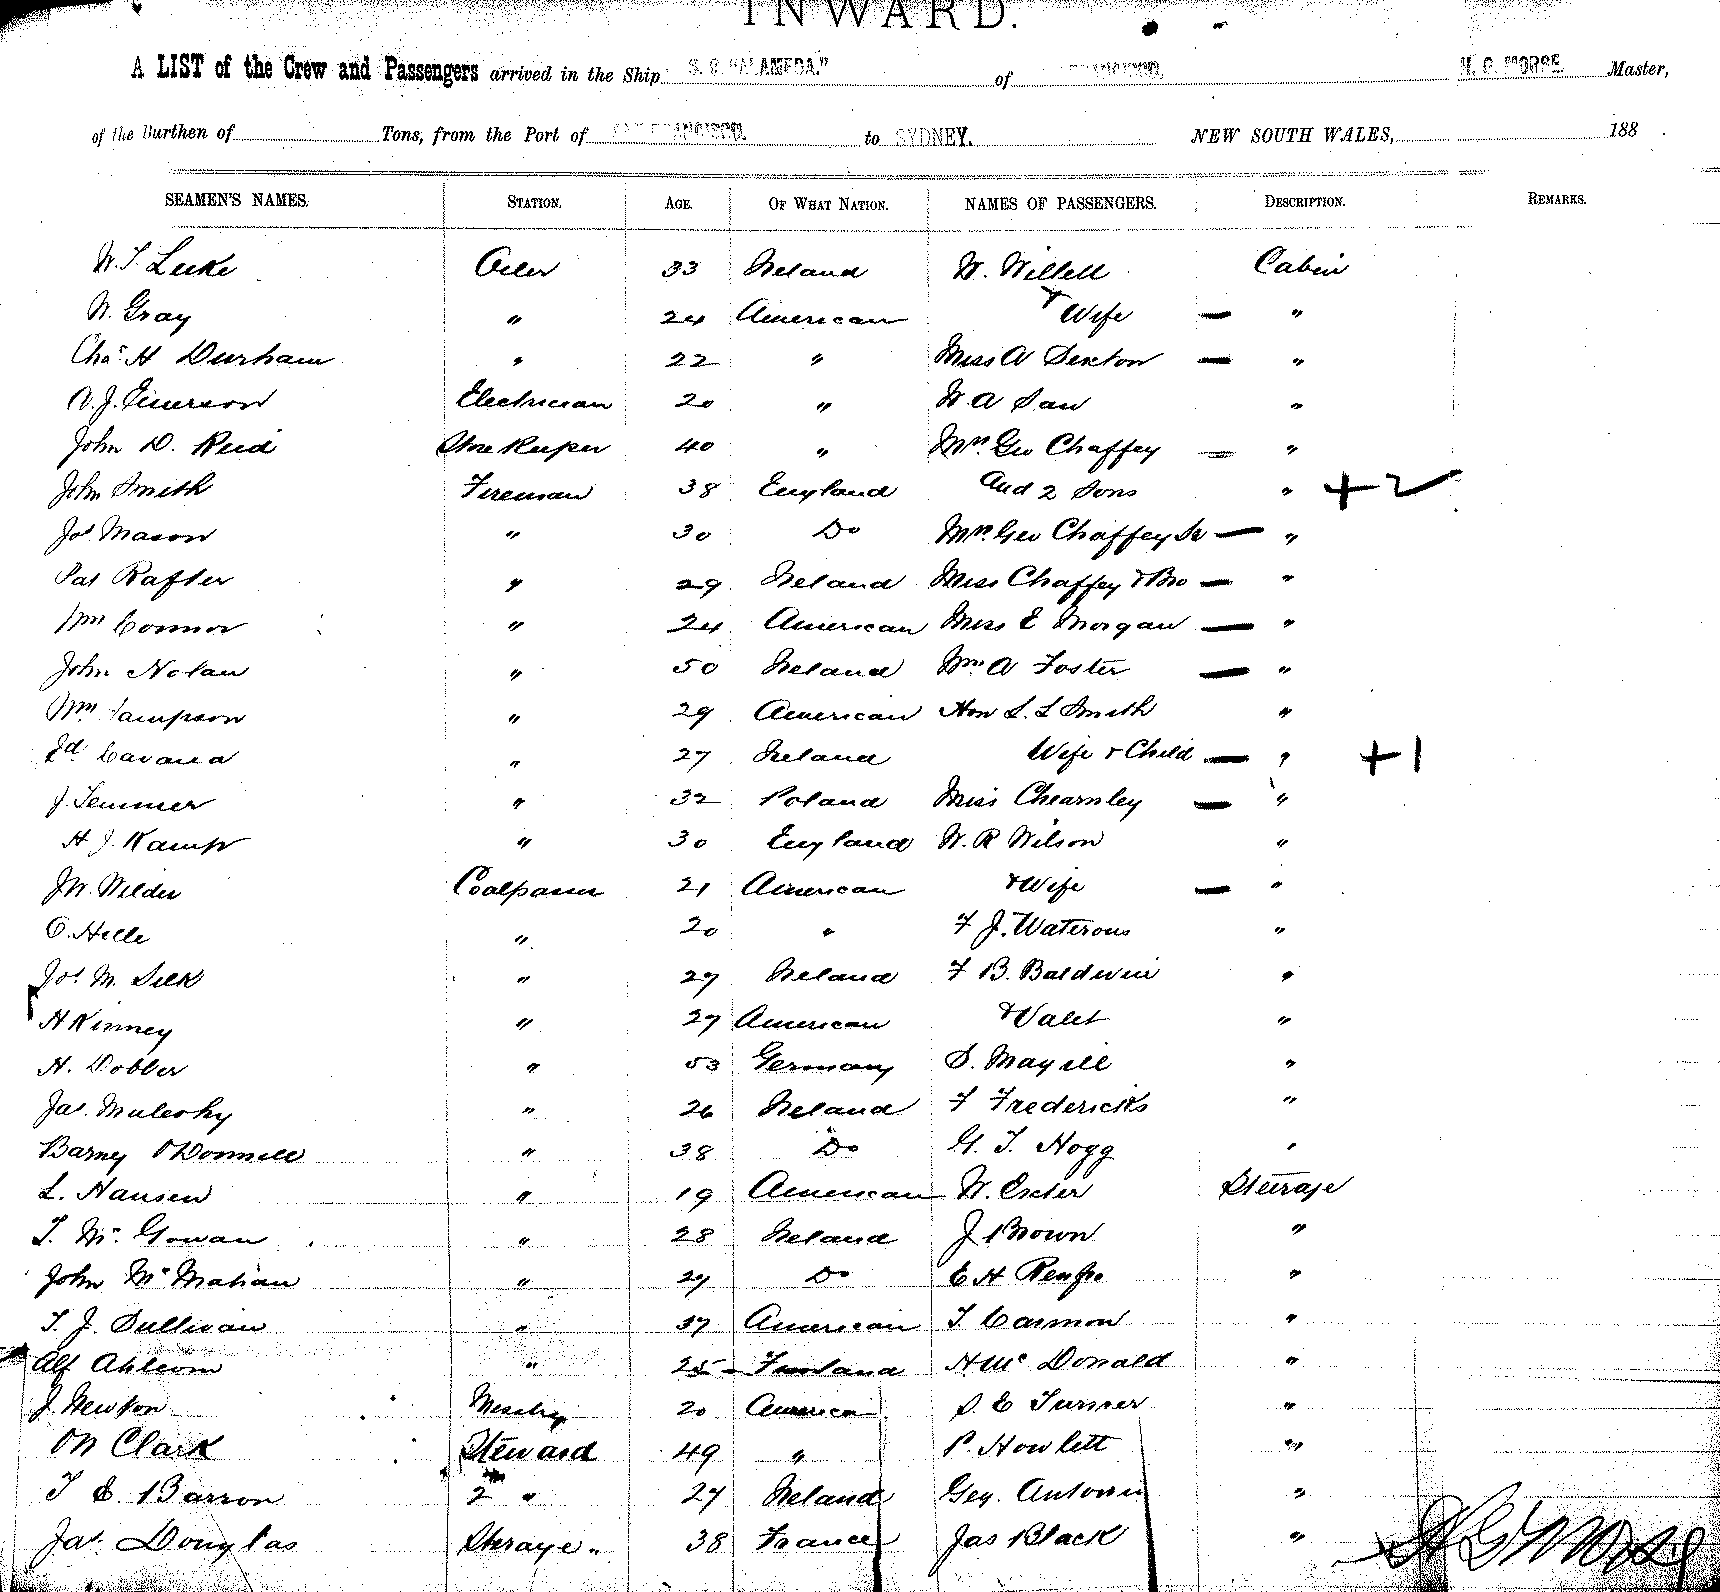 INWARD.
A LIST of the Crew and Passengers arrived in the Ship S. S. "ALAMEDA." of FRANCISCO. H. G. MORSE. Master,
of the Burthen of Tons, from the Port of SAN FRANCISCO. to SYDNEY. NEW SOUTH WALES, 188
SEAMEN'S NAMES. STATION. AGE. OF WHAT NATION. NAMES OF PASSENGERS. DESCRIPTION. REMARKS.
W. T. Luke Oiler 33 Ireland W. Willell Cabin
W. Gray " 24 American & Wife — "
Chas H Durham " 22 " Miss A Sexton — "
A. J. Emerson Electrician 20 " W A Saw "
John D. Reid Storekeeper 40 " Mrs Geo Chaffey — "
John Smith Fireman 38 England and 2 Sons " +2
Jos Mason " 30 Do Mrs. Geo Chaffey Sr — "
Pat Rafter " 29 Ireland Miss Chaffey & Bro — "
Wm Connor " 24 American Miss E Morgan — "
John Nolan " 50 Ireland Mrs A Foster — "
Wm Sampson " 29 American Hon L. L Smith "
Ed Cavana " 27 Ireland Wife & Child — " +1
J. Temmer " 32 Poland Miss Chearnley — "
H. J. Kamp " 30 England W. R Wilson "
J W. Wilder Coalpasser 21 American & Wife — "
O. Helle " 20 " F J. Waterous "
Jos M. Silk " 27 Ireland F B. Baldwin "
H Kinney " 27 American & Valet "
H. Dobler " 53 Germany S. Magill "
Jas. Muleohy " 26 Ireland F Fredericks "
Barney O'Donnell " 38 Do G. T. Hogg "
L. Hansen " 19 American W. Exeter Steerage
T. Mc Gowan " 28 Ireland J Brown "
John Mc Mahan " 29 Do E H Renfro "
T. J. Sullivan " 37 American T Carmon "
Alf Ahlcom " 25 Finland H Mc Donald "
J. Newton Messboy 20 American S. E Turner "
O N Clark Steward 49 " P. Howlett "
T E. Barron 2 " 27 Ireland Geg. "
Jas. Douglas Steerage " 38 France Jas Black "
H G Morse